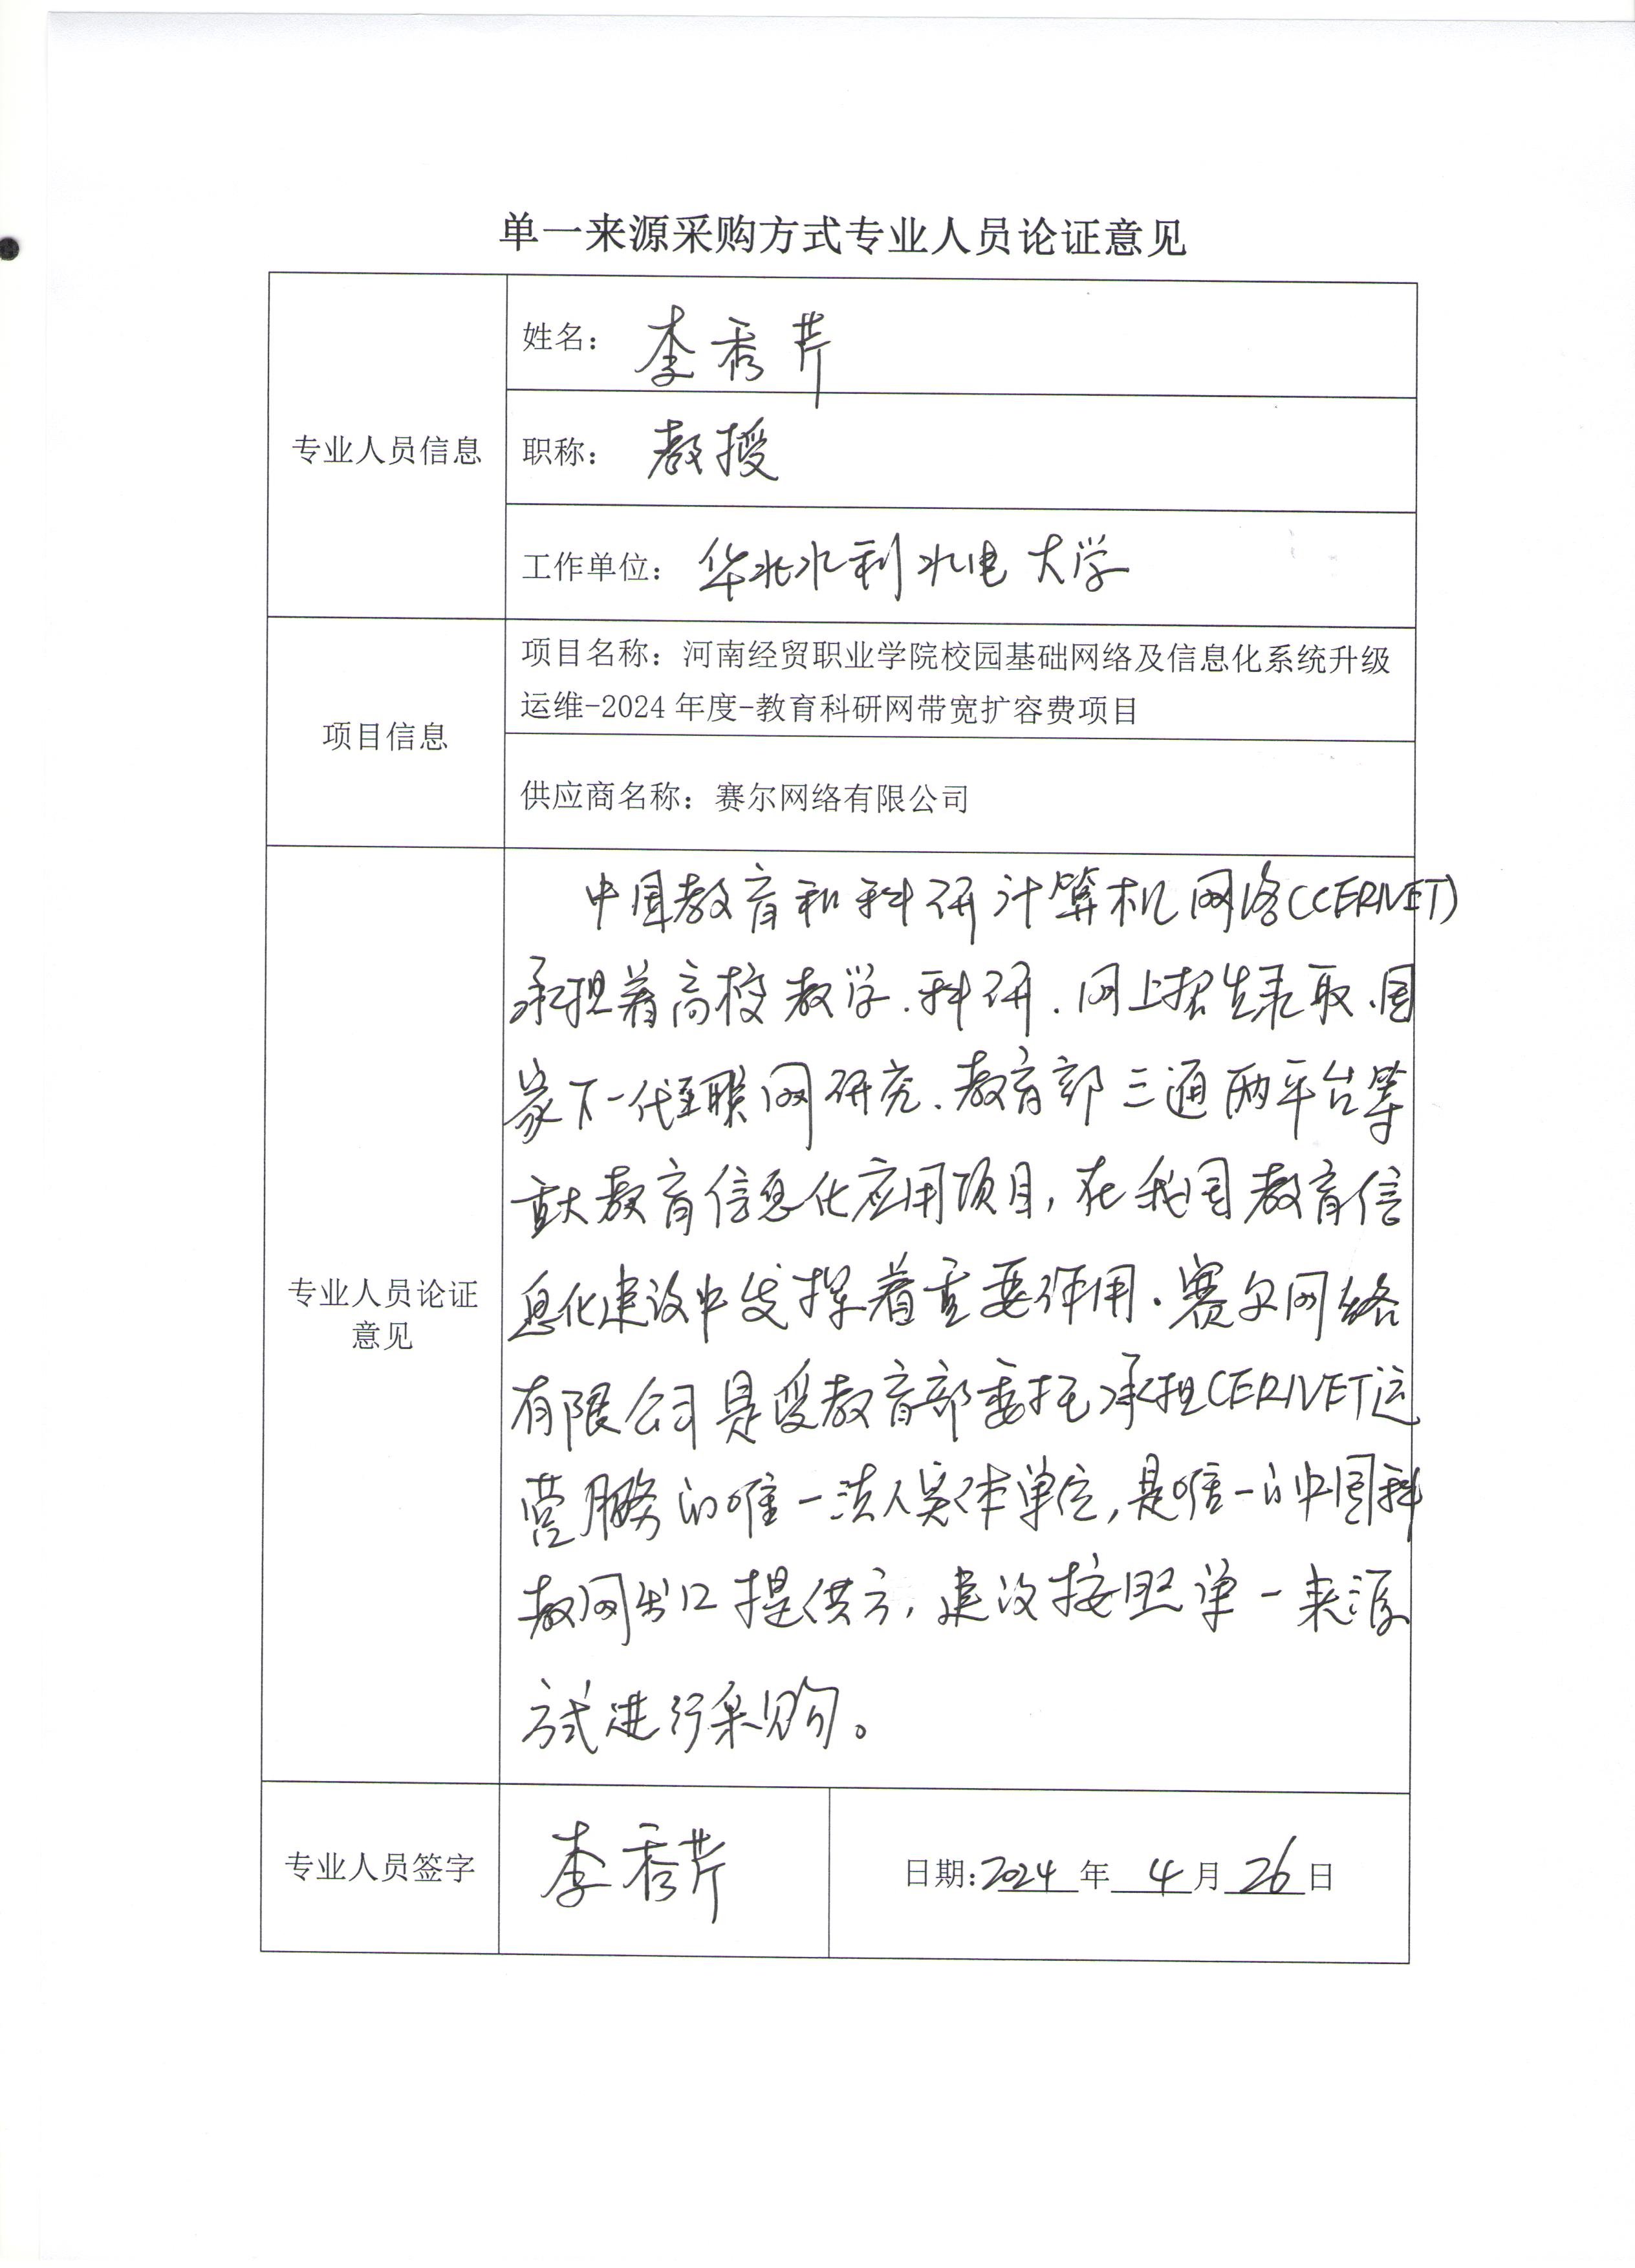 单一来源采购方式专业人员论证意见
专业人员信息
姓名：李秀芹
职称：教授
工作单位：华北水利水电大学
项目信息
项目名称：河南经贸职业学院校园基础网络及信息化系统升级
运维-2024年度-教育科研网带宽扩容费项目
供应商名称：赛尔网络有限公司
专业人员论证
意见
中国教育和科研计算机网络(CCERNET)
承担着高校教学、科研、网上招生录取、国
家下一代互联网研究、教育部三通两平台等
重大教育信息化应用项目，在我国教育信
息化建设中发挥着重要作用。赛尔网络
有限公司是受教育部委托承担CERNET运
营服务的唯一法人实体单位，是唯一的中国科
教网出口提供方，建议按照单一来源
方式进行采购。
专业人员签字
李秀芹
日期:2024年4月26日